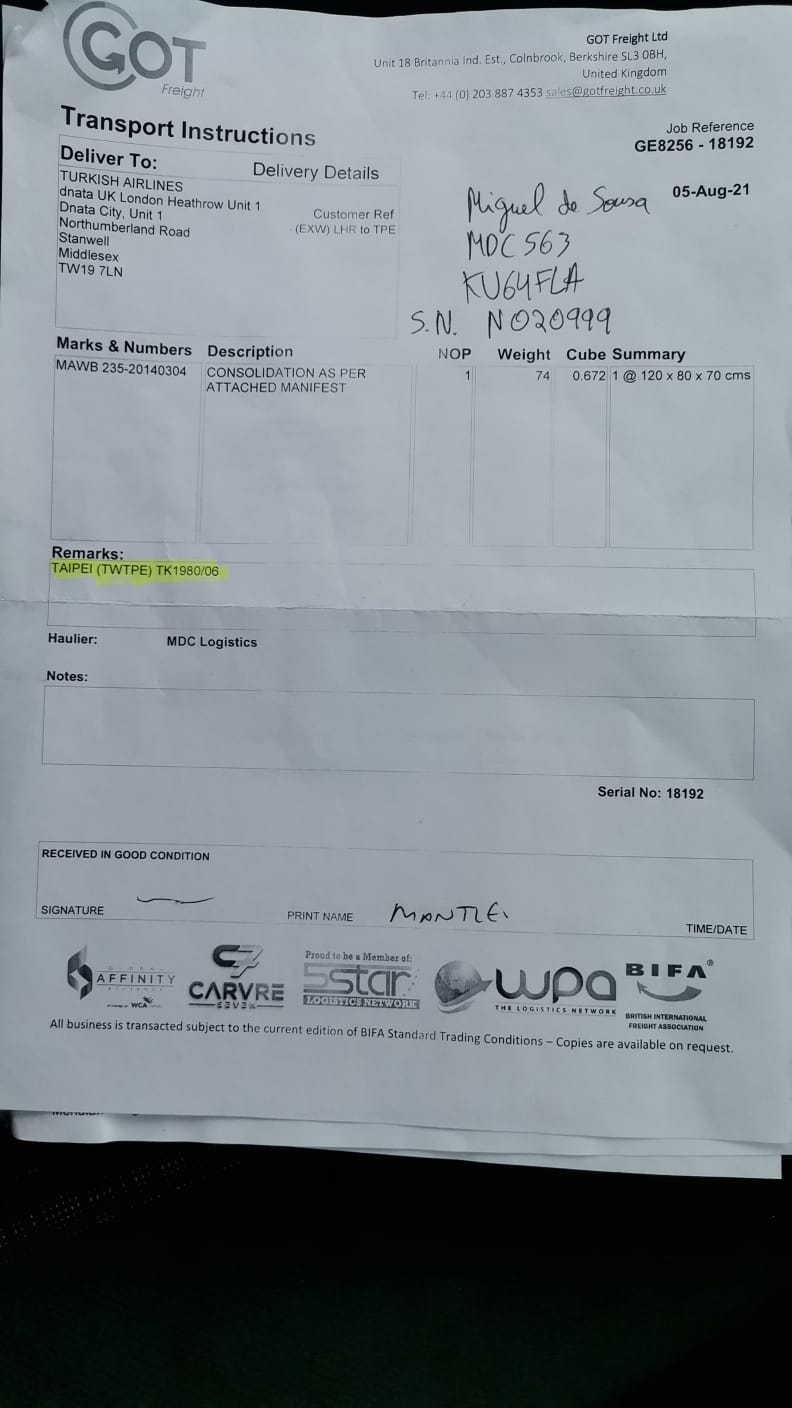 GOT
Freight
GOT Freight Ltd
Unit 18 Britannia Ind. Est., Colnbrook, Berkshire SL3 0BH,
United Kingdom
Tel: +44 (0) 203 887 4353 sales@gotfreight.co.uk
Transport Instructions
Job Reference
GE8256 - 18192
05-Aug-21
Deliver To:
Delivery Details
TURKISH AIRLINES
dnata UK London Heathrow Unit 1
Dnata City, Unit 1
Northumberland Road
Stanwell
Middlesex
TW19 7LN
Customer Ref
(EXW) LHR to TPE
Miguel de Sousa
MDC 563
KU64FLA
S.N. NO20999
Marks & Numbers Description NOP Weight Cube Summary
MAWB 235-20140304 CONSOLIDATION AS PER 1 74 0.672 1 @ 120 x 80 x 70 cms
ATTACHED MANIFEST
Remarks:
TAIPEI (TWTPE) TK1980/06
Haulier: MDC Logistics
Notes:
Serial No: 18192
RECEIVED IN GOOD CONDITION
SIGNATURE
PRINT NAME MANTLE
TIME/DATE
AFFINITY
WCA
C7
CARVRE
SEVEN
Proud to be a Member of:
5star
LOGISTICS NETWORK
wpa
THE LOGISTICS NETWORK
BIFA®
BRITISH INTERNATIONAL
FREIGHT ASSOCIATION
All business is transacted subject to the current edition of BIFA Standard Trading Conditions – Copies are available on request.